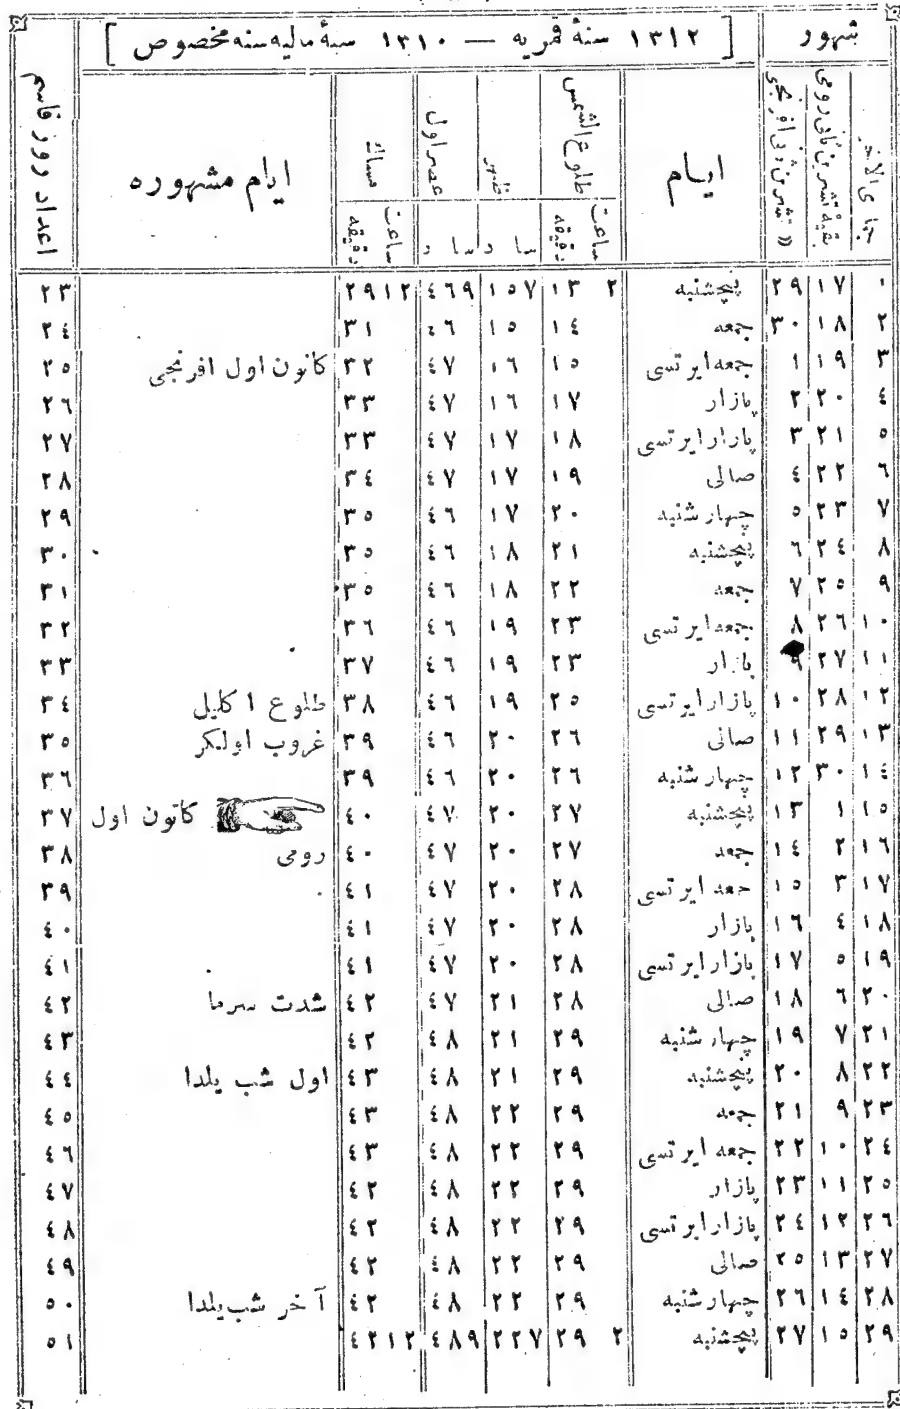 شهور [ ١٣١٢ سنۀ قمریه — ١٣١٠ سنۀ مالیه سنه مخصوص ]
جمادى الاخر بقیۀ تشرین ثانی رومی « تشرین ثانی افرنجی ایام طلوع الشمس ظهر عصر اول امساك ایام مشهوره اعداد روز قاسم
ساعت دقیقه سا د سا د ساعت دقیقه
١ ١٧ ٢٩ پنجشنبه ٢ ١٣ ٧ ١٥ ٩ ٤٦ ١٢ ٢٩ ٢٣
٢ ١٨ ٣٠ جمعه ١٤ ١٥ ٤٦ ٣١ ٢٤
٣ ١٩ ١ جمعه ایرتسی ١٥ ١٦ ٤٧ ٣٢ كانون اول افرنجی ٢٥
٤ ٢٠ ٢ پازار ١٧ ١٦ ٤٧ ٣٣ ٢٦
٥ ٢١ ٣ پازار ایرتسی ١٨ ١٧ ٤٧ ٣٣ ٢٧
٦ ٢٢ ٤ صالی ١٩ ١٧ ٤٧ ٣٤ ٢٨
٧ ٢٣ ٥ چهار شنبه ٢٠ ١٧ ٤٦ ٣٥ ٢٩
٨ ٢٤ ٦ پنجشنبه ٢١ ١٨ ٤٦ ٣٥ ٣٠
٩ ٢٥ ٧ جمعه ٢٢ ١٨ ٤٦ ٣٥ ٣١
١٠ ٢٦ ٨ جمعه ایرتسی ٢٣ ١٩ ٤٦ ٣٦ ٣٢
١١ ٢٧ ٩ پازار ٢٣ ١٩ ٤٦ ٣٧ ٣٣
١٢ ٢٨ ١٠ پازار ایرتسی ٢٥ ١٩ ٤٦ ٣٨ طلوع اكلیل ٣٤
١٣ ٢٩ ١١ صالی ٢٦ ٢٠ ٤٦ ٣٩ غروب اولكر ٣٥
١٤ ٣٠ ١٢ چهار شنبه ٢٦ ٢٠ ٤٦ ٣٩ ٣٦
١٥ ١ ١٣ پنجشنبه ٢٧ ٢٠ ٤٧ ٤٠ كانون اول ٣٧
١٦ ٢ ١٤ جمعه ٢٧ ٢٠ ٤٧ ٤٠ رومی ٣٨
١٧ ٣ ١٥ جمعه ایرتسی ٢٨ ٢٠ ٤٧ ٤١ ٣٩
١٨ ٤ ١٦ پازار ٢٨ ٢٠ ٤٧ ٤١ ٤٠
١٩ ٥ ١٧ پازار ایرتسی ٢٨ ٢٠ ٤٧ ٤١ ٤١
٢٠ ٦ ١٨ صالی ٢٨ ٢١ ٤٧ ٤٢ شدت سرما ٤٢
٢١ ٧ ١٩ چهار شنبه ٢٩ ٢١ ٤٨ ٤٢ ٤٣
٢٢ ٨ ٢٠ پنجشنبه ٢٩ ٢١ ٤٨ ٤٣ اول شب یلدا ٤٤
٢٣ ٩ ٢١ جمعه ٢٩ ٢٢ ٤٨ ٤٣ ٤٥
٢٤ ١٠ ٢٢ جمعه ایرتسی ٢٩ ٢٢ ٤٨ ٤٣ ٤٦
٢٥ ١١ ٢٣ پازار ٢٩ ٢٢ ٤٨ ٤٢ ٤٧
٢٦ ١٢ ٢٤ پازار ایرتسی ٢٩ ٢٢ ٤٨ ٤٢ ٤٨
٢٧ ١٣ ٢٥ صالی ٢٩ ٢٢ ٤٨ ٤٢ ٤٩
٢٨ ١٤ ٢٦ چهار شنبه ٢٩ ٢٢ ٤٨ ٤٢ آخر شب یلدا ٥٠
٢٩ ١٥ ٢٧ پنجشنبه ٢ ٢٩ ٧ ٢٢ ٩ ٤٨ ١٢ ٤٢ ٥١